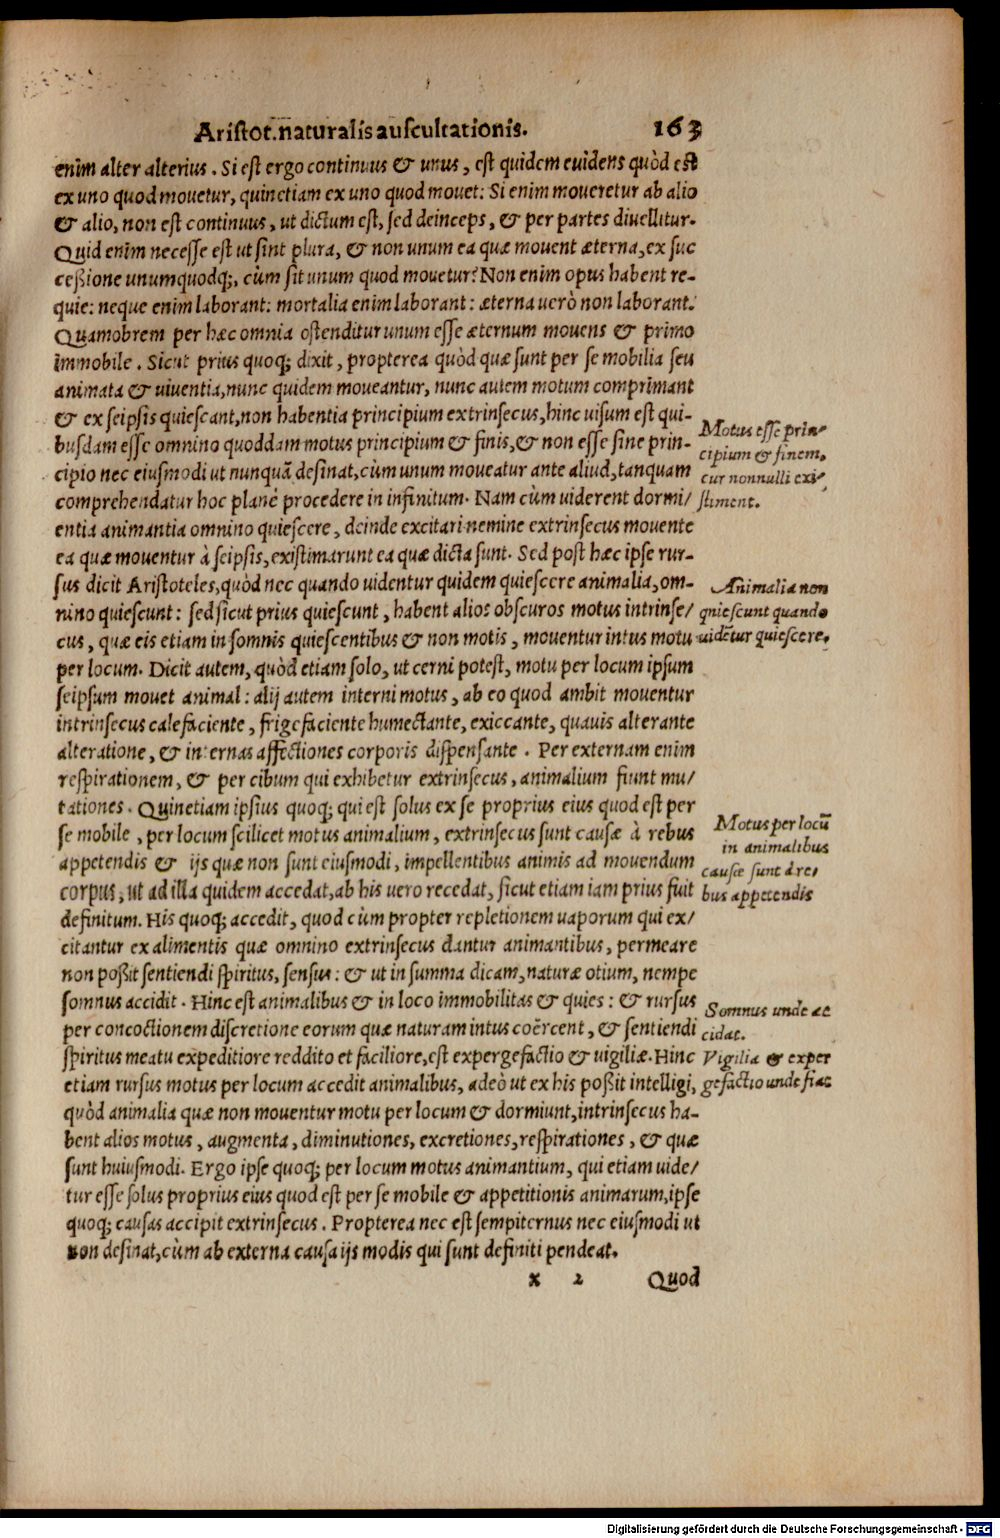 Aristot. naturalis auscultationis. 163
enim alter alterius. Si est ergo continuus & unus, est quidem euidens quòd est
ex uno quod mouetur, quinetiam ex uno quod mouet: Si enim moueretur ab alio
& alio, non est continuus, ut dictum est, sed deinceps, & per partes diuellitur.
Quid enim necesse est ut sint plura, & non unum ea quæ mouent æterna, ex suc
ceßione unumquodq;, cùm sit unum quod mouetur? Non enim opus habent re-
quie: neque enim laborant: mortalia enim laborant: æterna uerò non laborant.
Quamobrem per hæc omnia ostenditur unum esse æternum mouens & primo
immobile. Sicut prius quoq; dixit, propterea quòd quæ sunt per se mobilia seu
animata & uiuentia, nunc quidem moueantur, nunc autem motum comprimant
& ex seipsis quiescant, non habentia principium extrinsecus, hinc uisum est qui-
busdam esse omnino quoddam motus principium & finis, & non esse sine prin-
cipio nec eiusmodi ut nunquã desinat, cùm unum moueatur ante aliud, tanquam
comprehendatur hoc planè procedere in infinitum. Nam cùm uiderent dormi/
entia animantia omnino quiescere, deinde excitari nemine extrinsecus mouente
ea quæ mouentur à seipsis, existimarunt ea quæ dicta sunt. Sed post hæc ipse rur-
sus dicit Aristoteles, quòd nec quando uidentur quidem quiescere animalia, om-
nino quiescunt: sed sicut prius quiescunt, habent alios obscuros motus intrinse/
cus, quæ eis etiam in somnis quiescentibus & non motis, mouentur intus motu
per locum. Dicit autem, quòd etiam solo, ut cerni potest, motu per locum ipsum
seipsum mouet animal: alij autem interni motus, ab eo quod ambit mouentur
intrinsecus calefaciente, frigefaciente humectante, exiccante, quauis alterante
alteratione, & internas affectiones corporis dispensante. Per externam enim
respirationem, & per cibum qui exhibetur extrinsecus, animalium fiunt mu/
tationes. Quinetiam ipsius quoq; qui est solus ex se proprius eius quod est per
se mobile, per locum scilicet motus animalium, extrinsecus sunt causæ à rebus
appetendis & ijs quæ non sunt eiusmodi, impellentibus animis ad mouendum
corpus, ut ad illa quidem accedat, ab his uero recedat, sicut etiam iam prius fuit
definitum. His quoq; accedit, quod cùm propter repletionem uaporum qui ex/
citantur ex alimentis quæ omnino extrinsecus dantur animantibus, permeare
non poßit sentiendi spiritus, sensus: & ut in summa dicam, naturæ otium, nempe
somnus accidit. Hinc est animalibus & in loco immobilitas & quies: & rursus
per concoctionem discretione eorum quæ naturam intus coërcent, & sentiendi
spiritus meatu expeditiore reddito et faciliore, est expergefactio & uigiliæ. Hinc
etiam rursus motus per locum accedit animalibus, adeò ut ex his poßit intelligi,
quòd animalia quæ non mouentur motu per locum & dormiunt, intrinsecus ha-
bent alios motus, augmenta, diminutiones, excretiones, respirationes, & quæ
sunt huiusmodi. Ergo ipse quoq; per locum motus animantium, qui etiam uide/
tur esse solus proprius eius quod est per se mobile & appetitionis animarum, ipse
quoq; causas accipit extrinsecus. Propterea nec est sempiternus nec eiusmodi ut
non desinat, cùm ab externa causa ijs modis qui sunt definiti pendeat.
x 2 Quod
Motus esse prin-
cipium & finem,
cur nonnulli exi-
stiment.
Animalia non
quiescunt quando
uidẽtur quiescere.
Motus per locũ
in animalibus
causæ sunt à re/
bus appetendis
Somnus unde ac
cidat.
Vigilia & exper
gefactio unde fiat
Digitalisierung gefördert durch die Deutsche Forschungsgemeinschaft - DFG